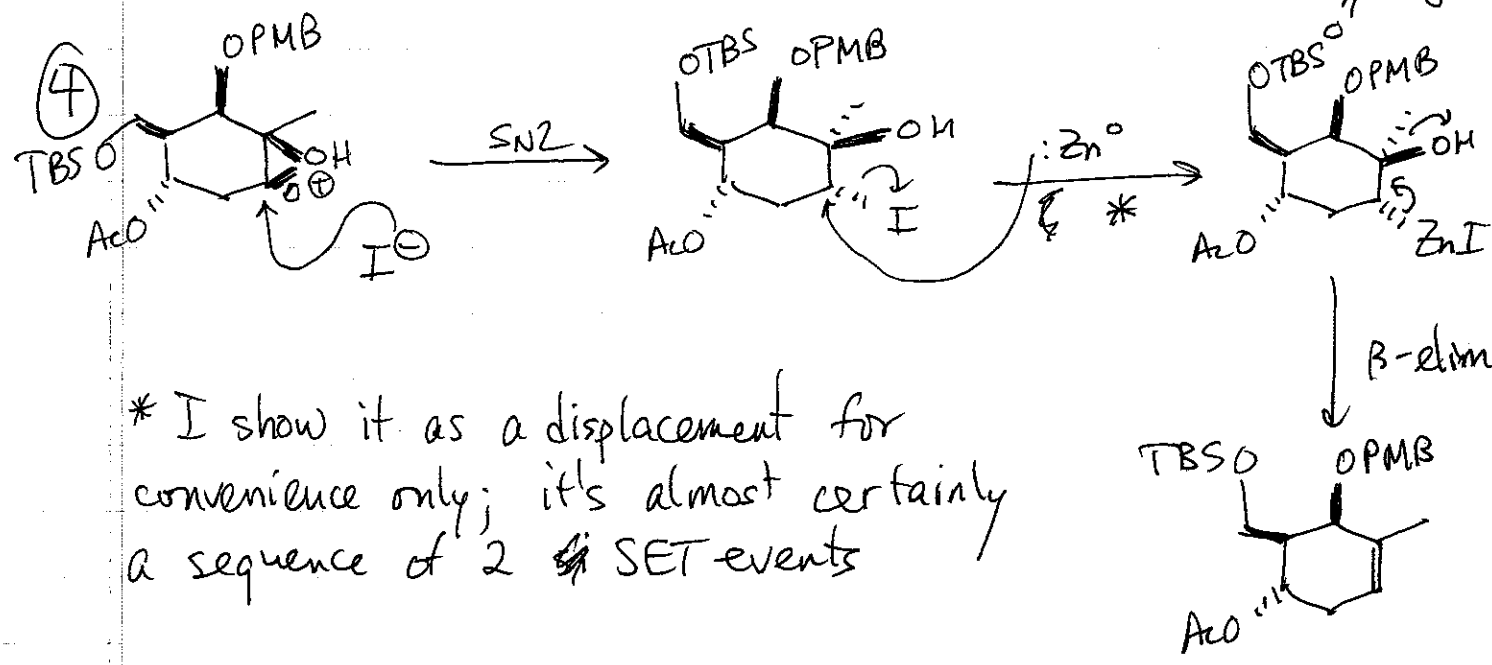 ④
OPMB
TBSO
OH
O⊕
AcO
I⊖
SN2
OTBS OPMB
OH
I
AcO
:Zn⁰
*
OTBS
OPMB
OH
AcO
ZnI
β-elim
* I show it as a displacement for
convenience only; it's almost certainly
a sequence of 2 SET events
TBSO OPMB
AcO